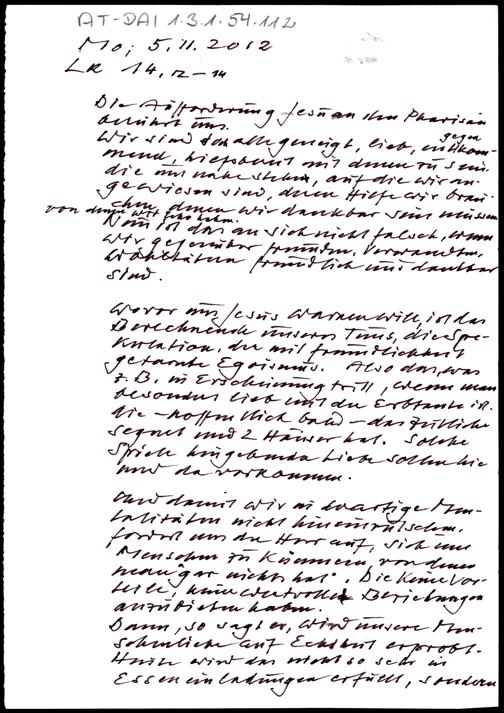 AT-DAI 1.3.1.54.112
Mo, 5.11.2012
Lk 14,12–14
Die Aufforderung Jesu an den Pharisäer
berührt uns.
gegen
Wir sind doch alle geneigt, lieb, entkom-
mend, hilfsbereit mit denen zu sein,
die uns nahe stehen, auf die wir an-
gewiesen sind, deren Hilfe wir brau-
chen, denen wir dankbar sein müssen
von denen wir
Nun ist das an sich nicht falsch, wenn
wir gegenüber Freunden, Verwandten,
Wohltätern freundlich und dankbar
sind.
Wovor uns Jesus warnen will, ist das
Berechnende unseres Tuns, die Spe-
kulation, der mit Freundlichkeit
getarnte Egoismus. Also das, was
z.B. in Erscheinung tritt, wenn man
besonders lieb mit der Erbtante ist.
die – hoffentlich bald – das Zeitliche
segnet und 2 Häuser hat. Solche
Spiele hingebender Liebe sollen hie
und da vorkommen.
Und damit wir in derartige Men-
talitäten nicht hineinrutschen,
fordert uns der Herr auf, sich um
Menschen zu kümmern, von denen
man "gar nichts hat". Die keine Vor-
teile, keine wertvollen Beziehungen
anzubieten haben.
Dann, so sagt er, wird unsere Men-
schenliebe auf Echtheit erprobt.
Heute wird das nicht so sehr in
Esseneinladungen erfüllt, sondern